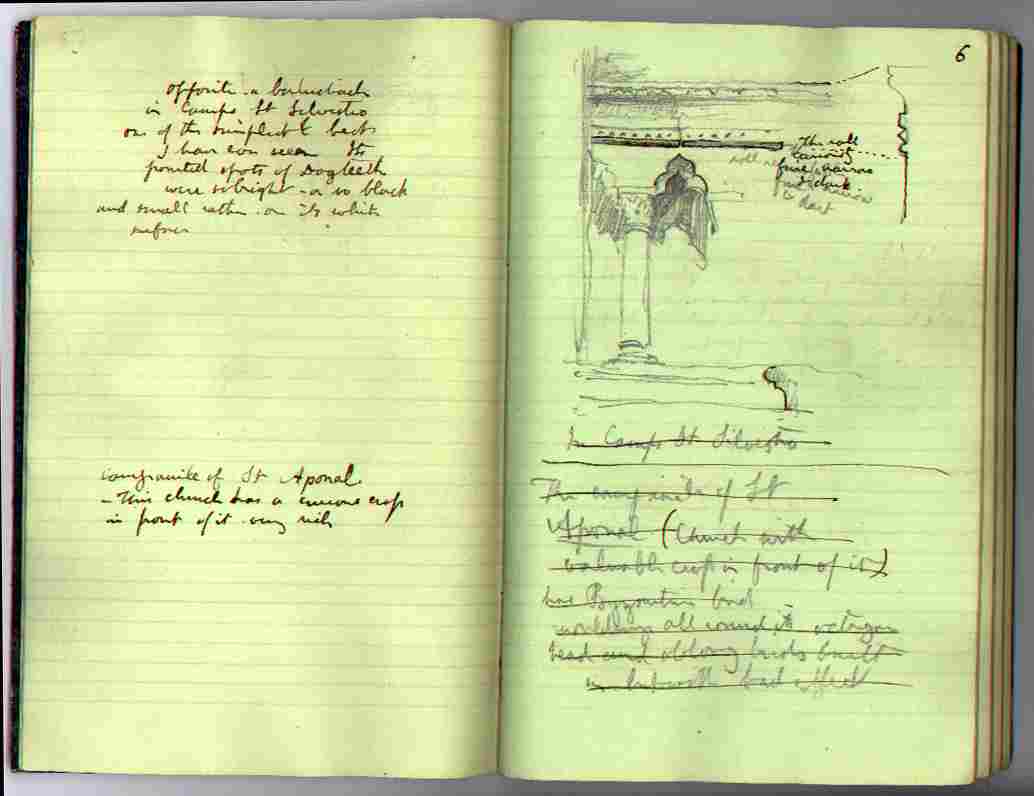 opposite a balustrade
in Campo St Silvestro
one of the simplest & best
I have ever seen Its
pointed spots of Dogteeth
were so bright - or so black
and small rather - on its white
surface
Campanile of St Aponal
- This church has a curious cross
in front of it very rich
6
This roll
curiously
fine & narrow
and dark
is dark
In Campo St Silvestro
The campanile of St
Aponal (Church with
valuable cross in front of it)
has Byzantine brick
mouldings all round its octagon
head and oblong bricks built
in but with bad effect